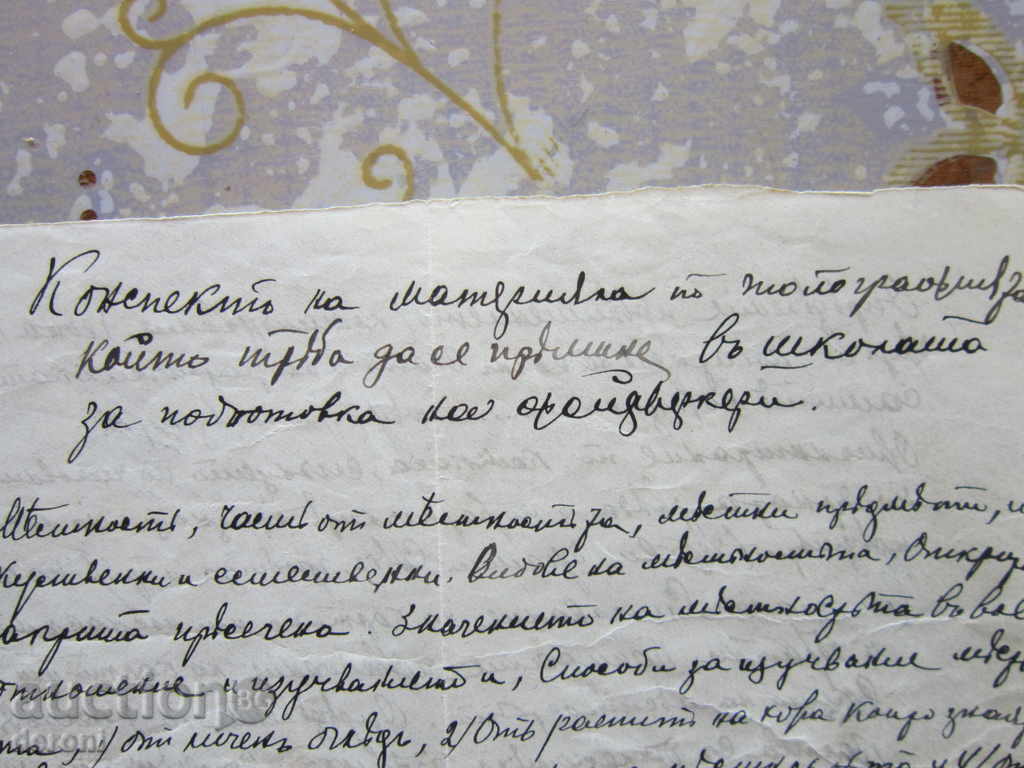 Конспектъ на материяла по топографията
който трѣба да се прѣмине въ школата
за подготовка на фойерверкери.
Мѣстность, часть отъ мѣстностьта, мѣстни прѣдмѣти, и
куственни и естественни. Видове на мѣстностьта, Откри
закрита прѣсечена. Значението на мѣстностьта въ вое
отношение и изучванието и, Способи за изучвание мѣст
та, 1/ отъ личенъ огледъ, 2/ Отъ распитъ на хора които зная
auction.bg
deroni